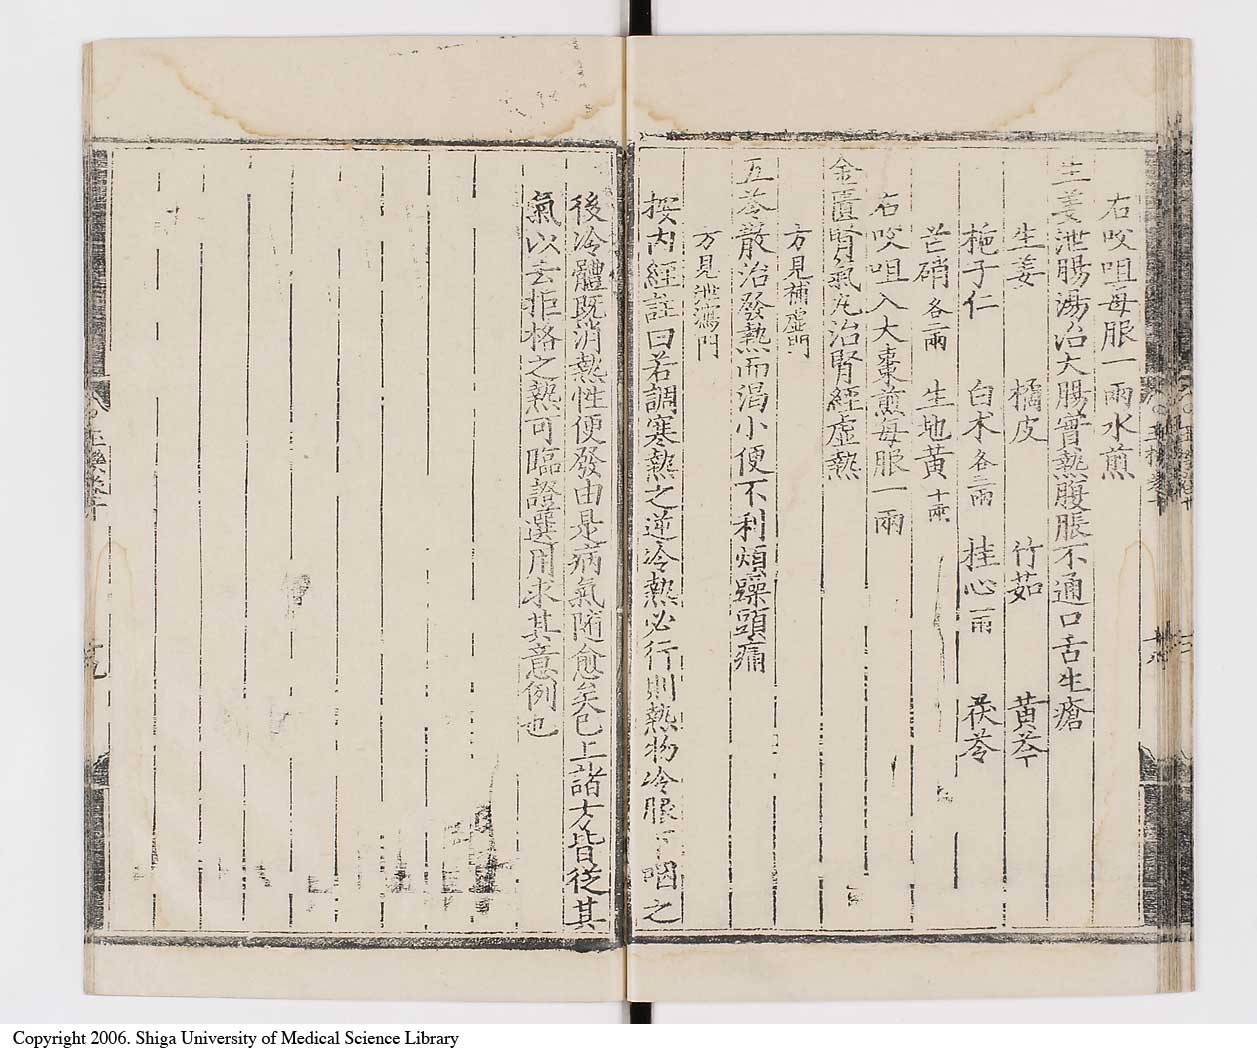 右㕮咀每服一兩水煎
生姜泄腸湯治大腸實熱腹脹不通口舌生瘡
生姜 橘皮 竹茹 黃芩
梔子仁 白朮各三兩 桂心一兩 茯苓
芒硝各三兩 生地黃十兩
右㕮咀入大棗煎每服一兩
金匱腎氣丸治腎經虛熱
方見補虛門
五苓散治發熱而渴小便不利煩躁頭痛
方見泄瀉門
按內經註曰若調寒熱之逆冷熱必行則熱物冷服下咽之
後冷體既消熱性便發由是病氣隨愈矣已上諸方皆從其
氣以去拒格之熱可臨證選用求其意例也
Copyright 2006. Shiga University of Medical Science Library